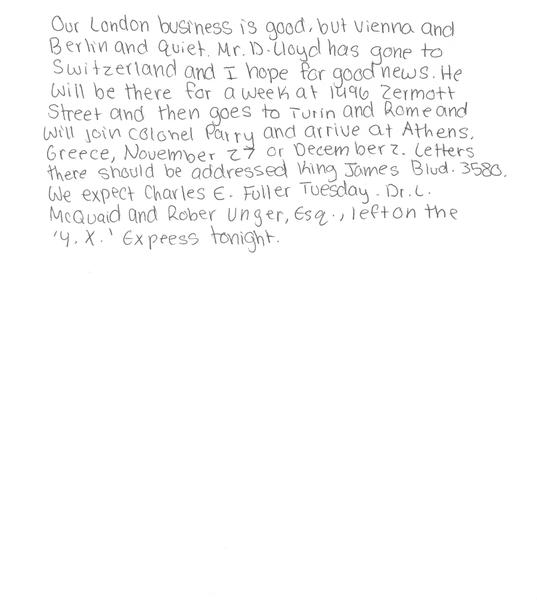 Our London business is good, but Vienna and
Berlin and quiet. Mr. D. Lloyd has gone to
Switzerland and I hope for good news. He
will be there for a week at 1496 Zermott
Street and then goes to Turin and Rome and
will join Colonel Parry and arrive at Athens,
Greece, November 27 or December 2. Letters
there should be addressed King James Blvd. 3580.
We expect Charles E. Fuller Tuesday. Dr. L.
McQuaid and Rober Unger, Esq., left on the
'Y. X.' Expeess tonight.